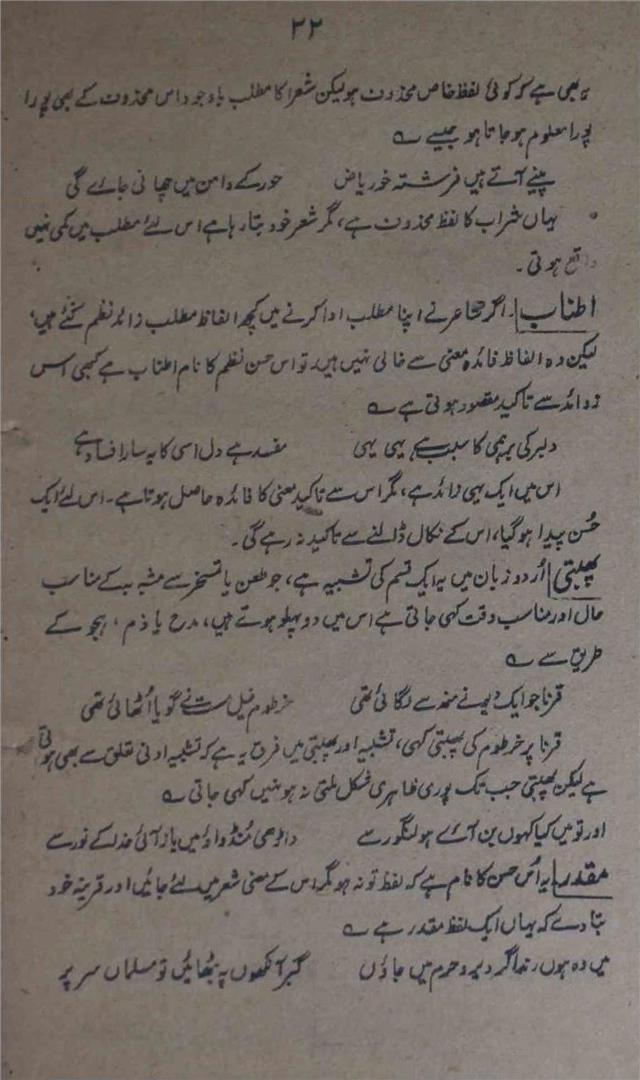 ۲۲
یہ بھی ہے کہ کوئی لفظ خاص محذوف ہو لیکن شعر کا مطلب باوجود اس محذوف کے بھی پورا
پورا معلوم ہو جاتا ہو جیسے ؎
پینے آتے ہیں فرشتہ خو ریاض حور کے دامن میں چھانی جاے گی
یہاں شراب کا لفظ محذوف ہے، مگر شعر خود بتا رہا ہے اس لئے مطلب میں کمی نہیں
واقع ہوتی۔
اطناب۔ اگر شاعر نے اپنا مطلب ادا کرنے میں کچھ الفاظ مطلب زائد نظم کئے ہیں،
لیکن وہ الفاظ فائدہ معنی سے خالی نہیں ہیں، تو اس حسن نظم کا نام اطناب ہے کبھی اس
زوائد سے تاکید مقصود ہوتی ہے ؎
دلبر کی برہمی کا سبب ہے یہی یہی مفسد ہے دل اسی کا یہ سارا فساد ہے
اس میں ایک یہی زائد ہے، مگر اس سے تاکید معنی کا فائدہ حاصل ہوتا ہے۔ اس لئے ایک
حُسن پیدا ہو گیا، اس کے نکال ڈالنے سے تاکید نہ رہے گی۔
پھبتی اُردو زبان میں یہ ایک قسم کی تشبیہ ہے، جو طعن یا تمسخر سے مشبہ بہ کے مناسب
حال اور مناسب وقت کہی جاتی ہے اس میں دو پہلو ہوتے ہیں، مدح یا ذم، ہجو کے
طریق سے ؎
قرنا جو ایک دیو نے منہ سے لگائی تھی خرطوم فیل مست نے گویا اُٹھائی تھی
قرنا پر خرطوم کی پھبتی کہی، تشبیہ اور پھبتی میں فرق یہ ہے کہ تشبیہ ادنی تعلق سے بھی ہوتی
ہے لیکن پھبتی جب تک پوری ظاہری شکل ملتی نہ ہو نہیں کہی جاتی ؎
اور تو میں کیا کہوں بن آئے ہو لنگور سے داڑھی منڈواؤ میں باز آئی خدا کے نور سے
مقدر یہ اُس حسن کا نام ہے کہ لفظ تو نہ ہو مگر اس کے معنی شعر میں لئے جائیں اور قرینہ خود
بتا دے کہ یہاں ایک لفظ مقدر ہے ؎
میں وہ ہوں رند اگر دیر و حرم میں جاؤں گبر آنکھوں پہ بٹھائیں تو مسلماں سر پر